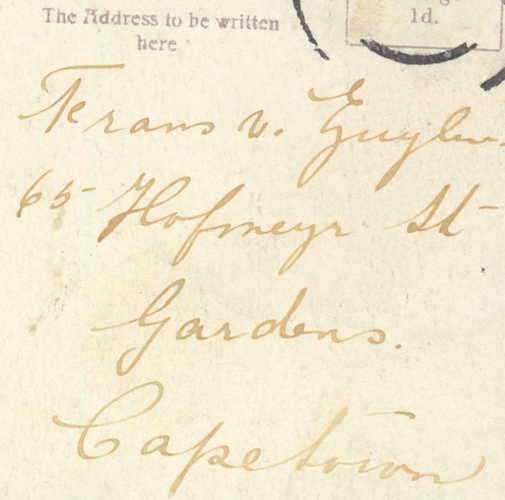 The Address to be written
here
1d.
Frans v.
65 Hofmeyr St
Gardens.
Capetown